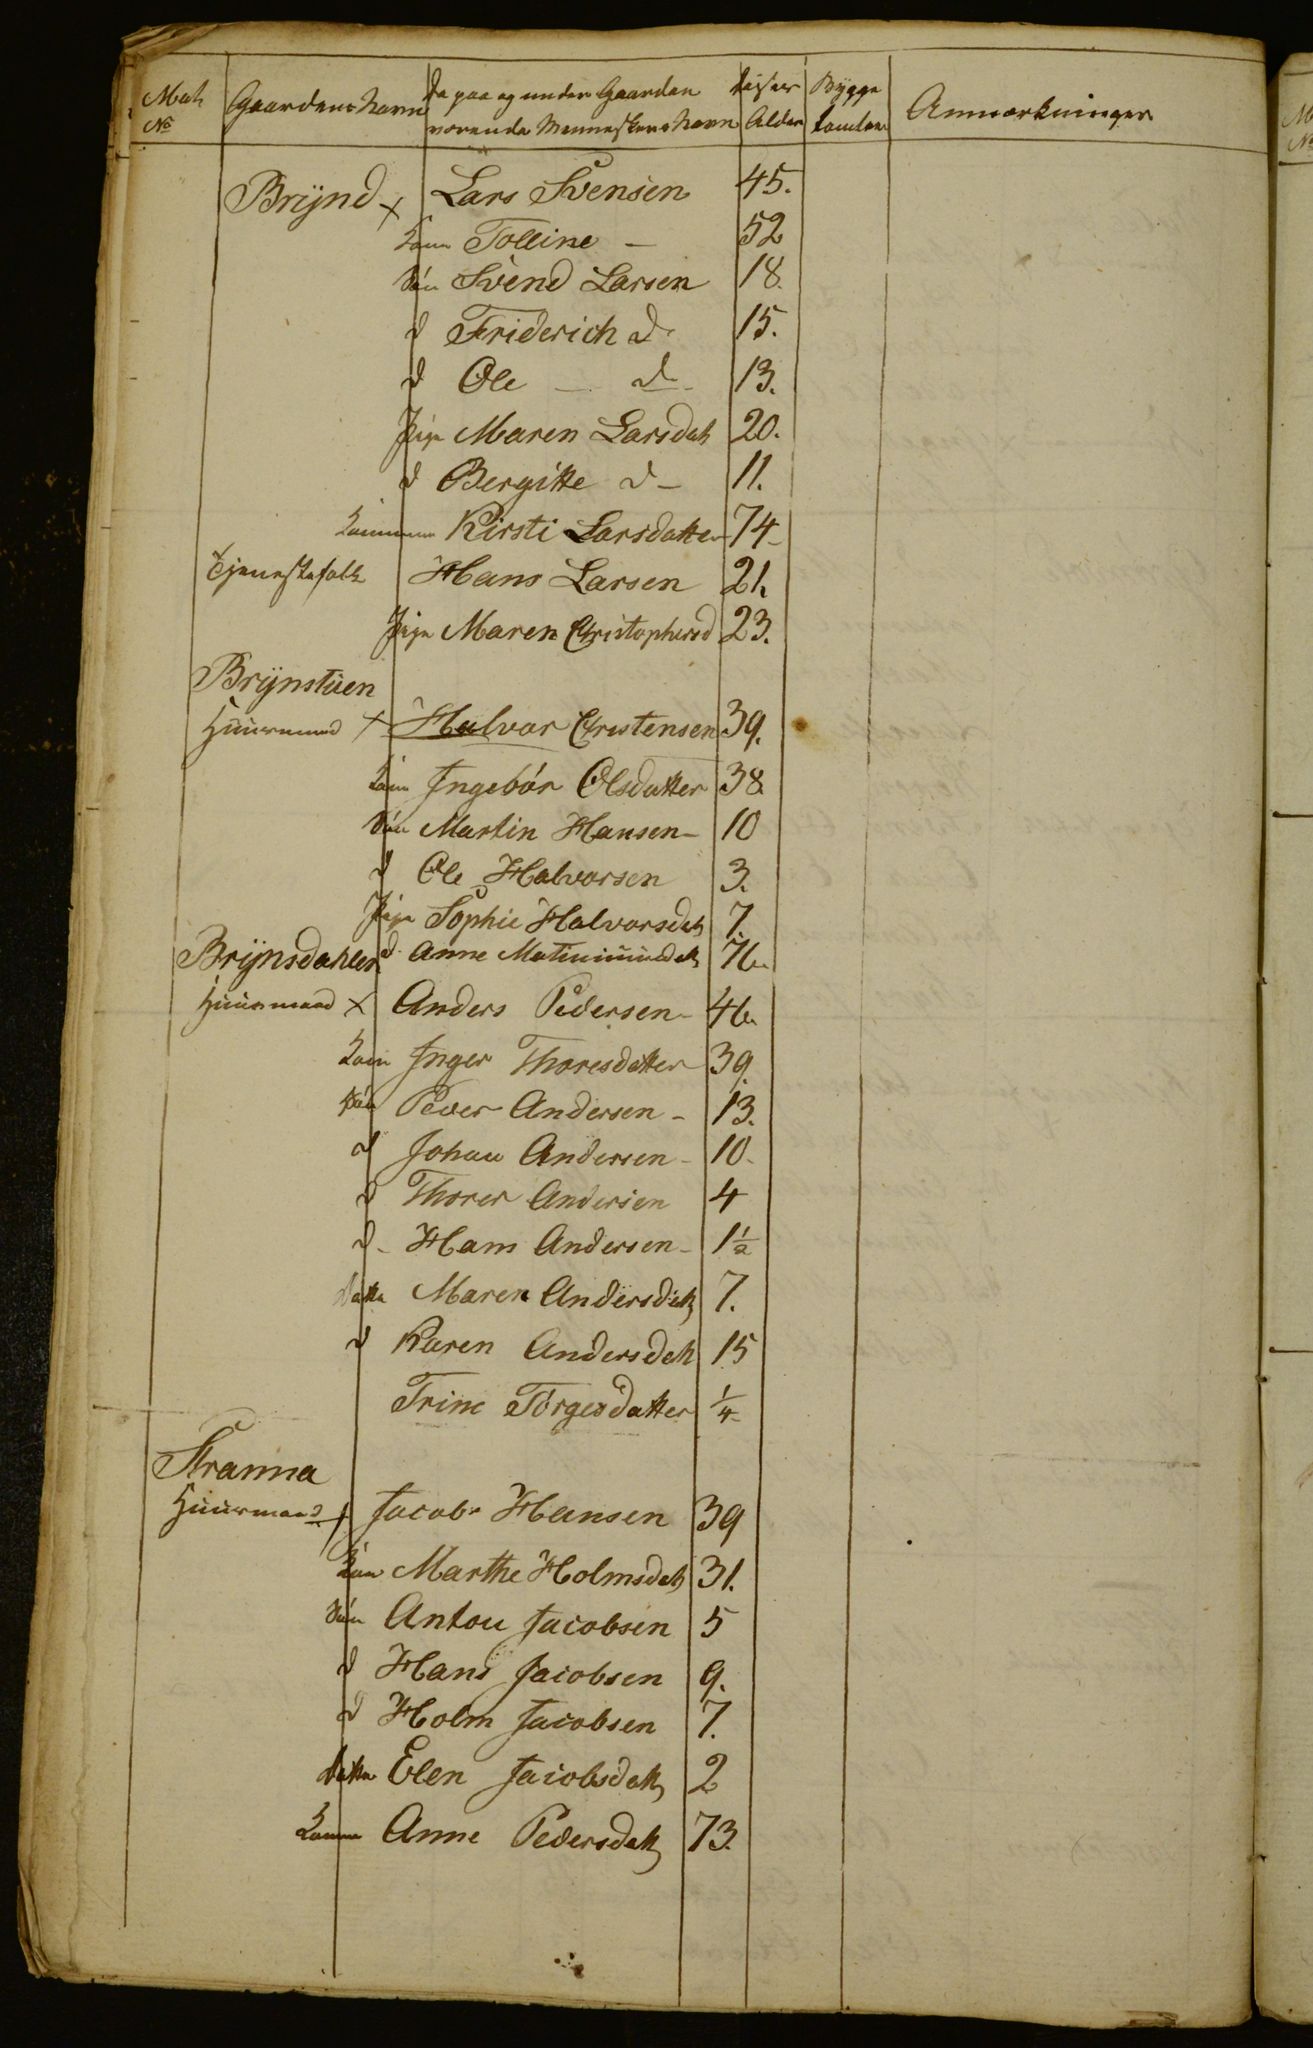 Mat No Gaardens Navn De paa og under Gaarden værende Menneskers Navn disses Alder Bygge Anmærkninger
Brÿnd x Lars Svensen 45.
Kone Tolline — 52
Søn Svend Larsen 18
d Friderich d 15.
d Ole — d 13.
Pige Maren Larsdatt 20.
d Bergitte d — 11.
Kirsti Larsdatter 74
Tjenestefolk Hans Larsen 21
Pige Maren Christophersd 23.
Brÿnstüen
Huusmand x Halvor Christensen 39.
Kone Ingebór Olsdatter 38
Søn Martin Hansen 10
d Ole Halvorsen 3.
Pige Sophie Halvorsdatt 7.
Brÿnsdahlen d Anne 76
Huusmand x Anders Pedersen 46
Kone Inger Thoresdatter 39.
Søn Peder Andersen 13.
d Johan Andersen 10
d Thorer Andersen 4
d Hans Andersen 1½
Datter Maren Andersdatt 7.
d Karen Andersdatt 15
Trine Törgesdatter ¼
Stranna
Huusmand x Jacob Hansen 39
Kone Marthe Holmsdatt 31.
Søn Anton Jacobsen 5
d Hans Jacobsen 9.
d Holm Jacobsen 7.
Datter Elen Jacobsdatt 2
Anne Pedersdatt 73.